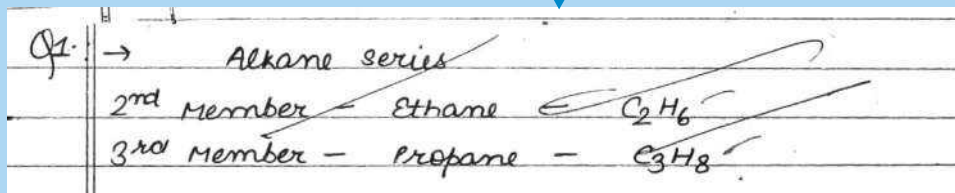 Q1. → Alkane series
2nd Member - Ethane - C₂H₆
3rd Member - Propane - C₃H₈